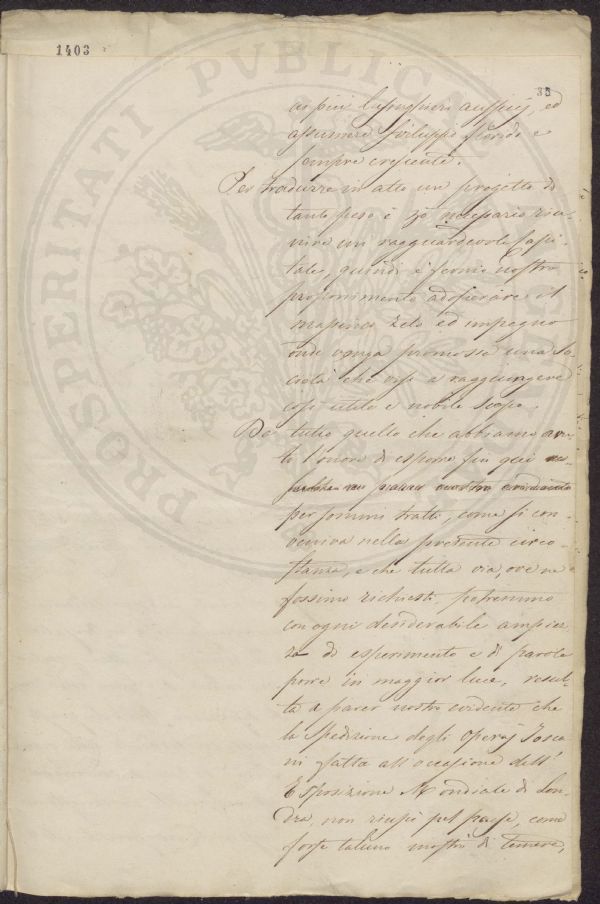 1403
35
ai più lusinghieri auspicj, ed
assumere sviluppo florido e
sempre crescente.
Per tradurre in atto un progetto di
tanto peso è necessario riu-
nire un ragguardevole capi-
tale, quindi è fermo nostro
proponimento adoperare il
massimo zelo ed impegno
onde venga promossa una So-
cietà che miri a raggiungere
così utile e nobile scopo.
Da tutto quello che abbiamo avu-
to l'onore di esporre fin qui
a parer nostro evidente
per sommi tratti, come si con-
veniva nella presente circo-
stanza, e che tutta via, ove ne
fossimo richiesti, potremmo
con ogni desiderabile ampiez-
za di esperimento e di parole
porre in maggior luce, resul-
ta a parer nostro evidente che
la Spedizione degli Operaj Tosca-
ni fatta all'occasione dell'
Esposizione Mondiale di Lon-
dra, non riuscì pel paese, come
forse taluno mostrò di temere,
PROSPERITATI PVBLICAE